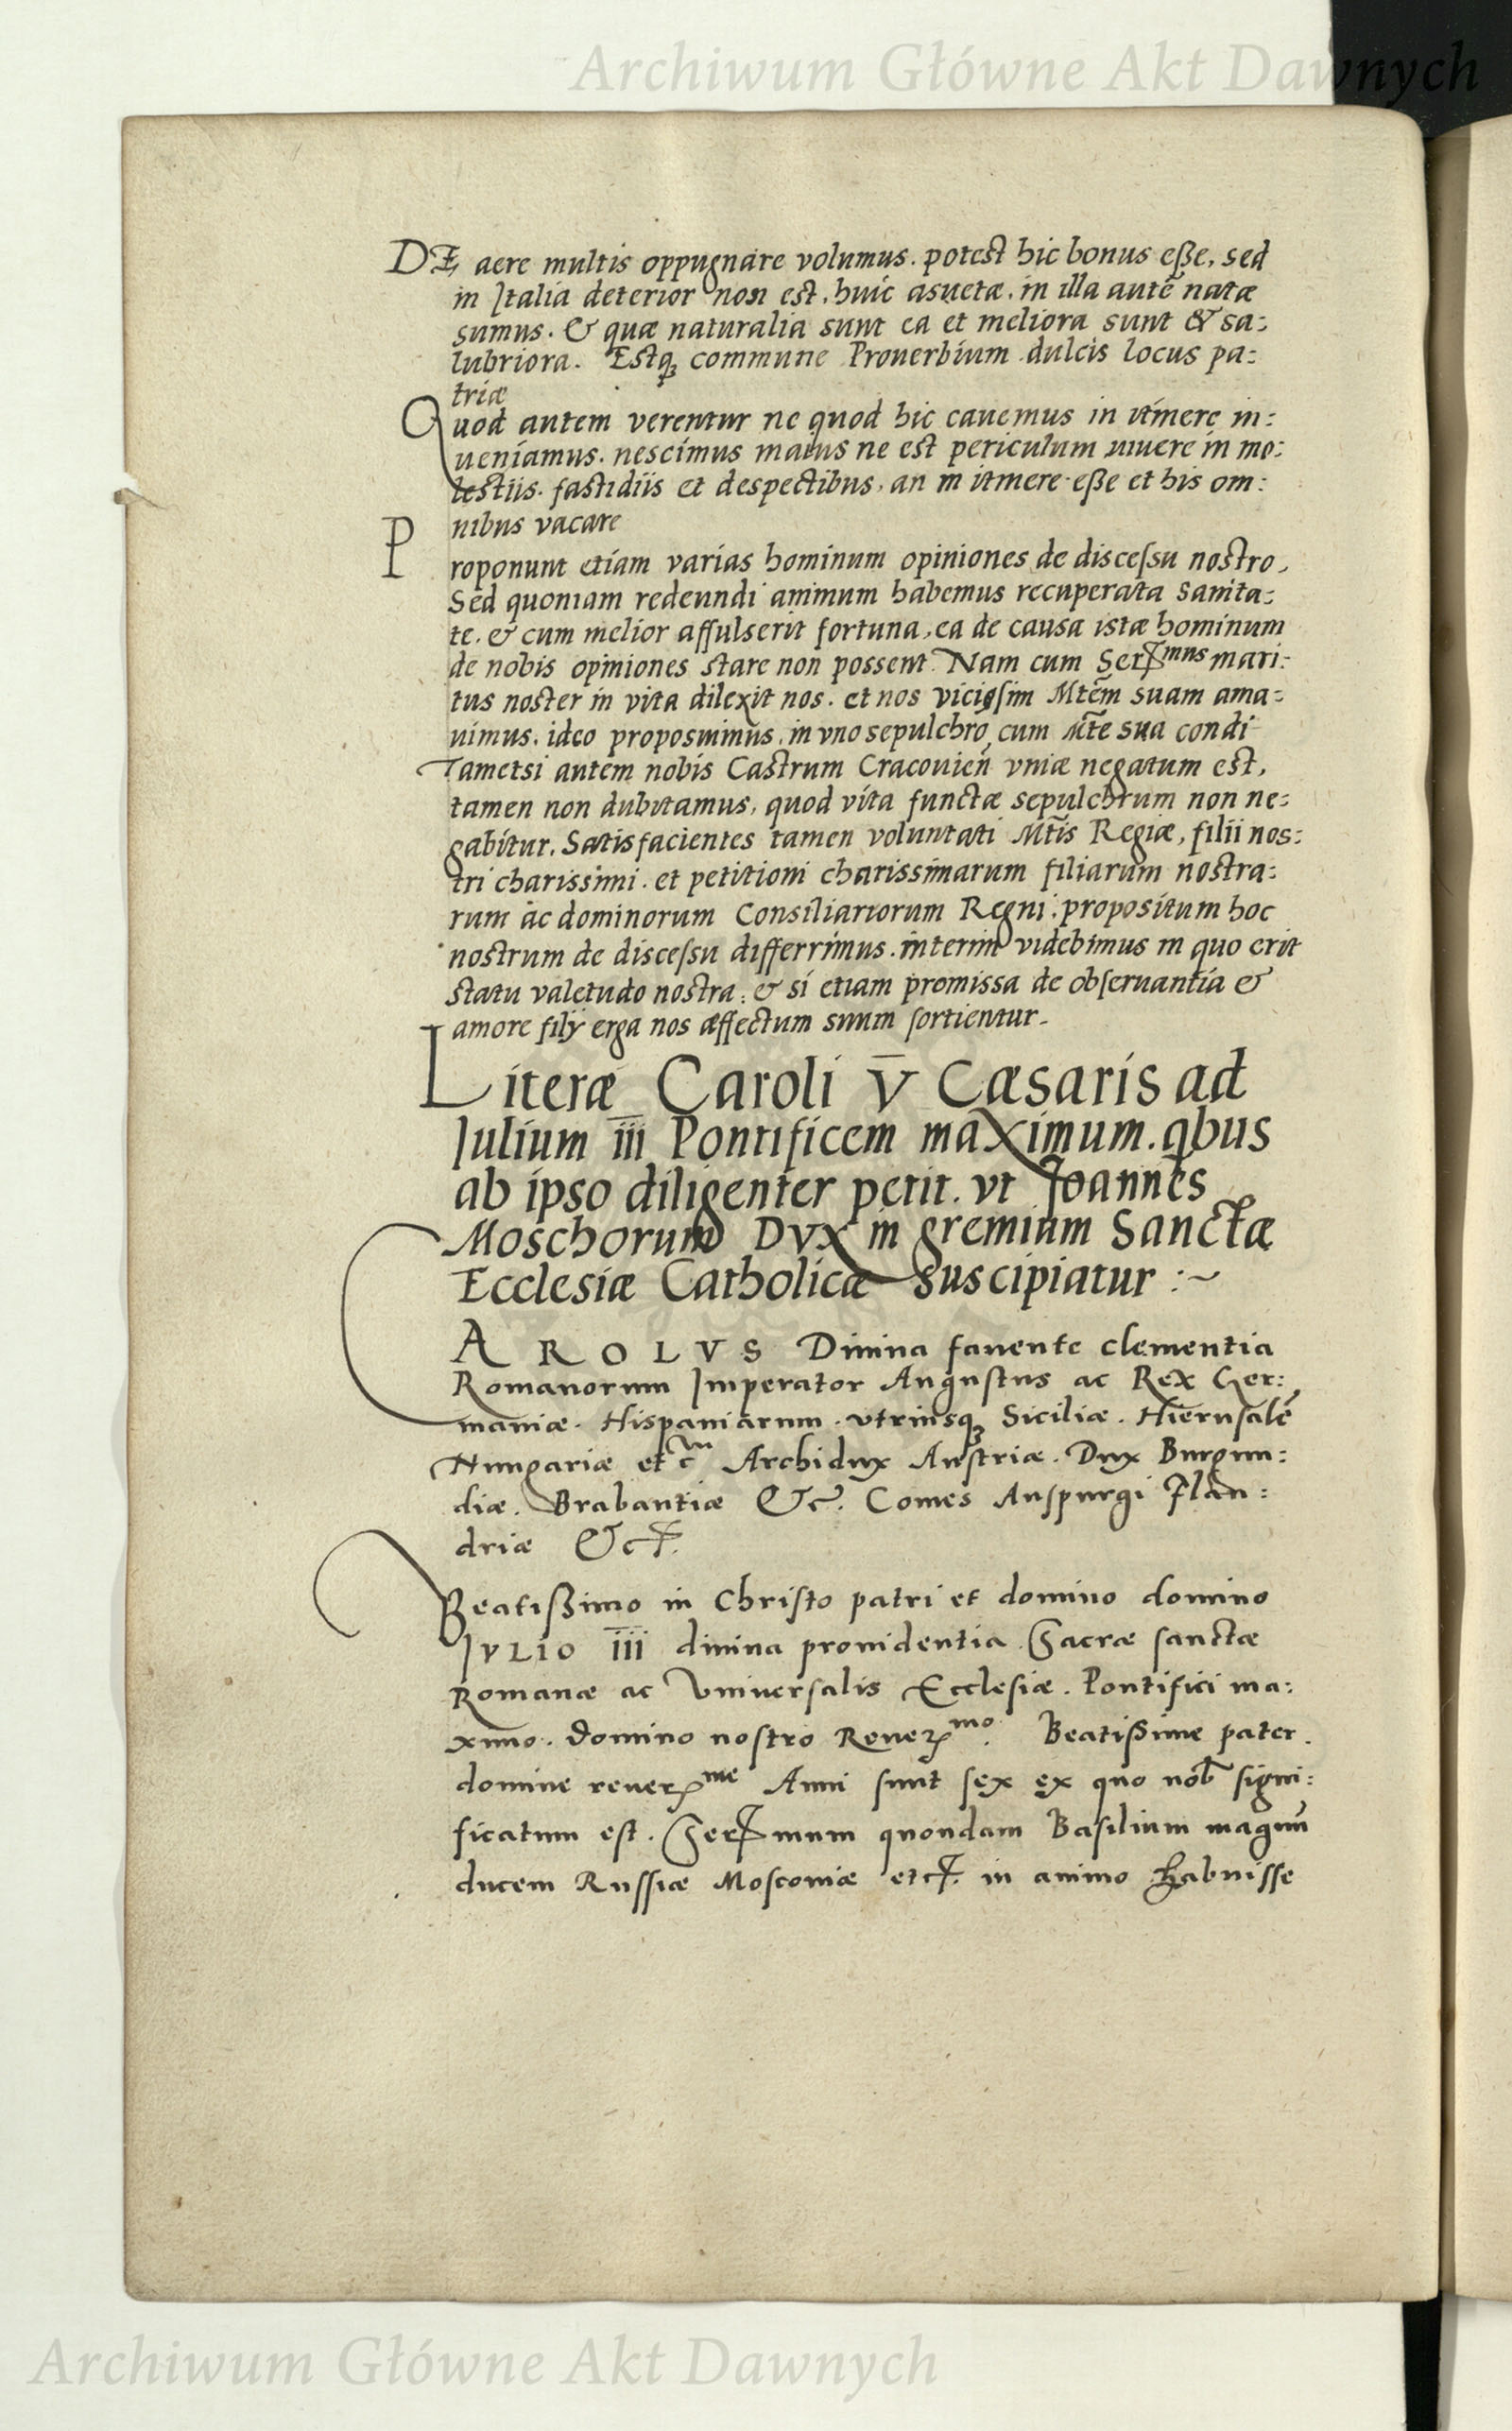 Archiwum Główne Akt Dawnych
DE aere multis oppugnare volumus. potest hic bonus eße, sed
in Italia deterior non est, huic asuetæ, in illa autē natæ
sumus. & quæ naturalia sunt ea et meliora sunt & sa:
lubriora. Estqꝫ commune Prouerbium dulcis locus pa:
triæ
Quod autem verentur ne quod hic cauemus in itinere in:
ueniamus. nescimus maius ne est periculum uiuere in mo:
lestiis. fastidiis et despectibus, an in itinere eße et his om:
nibus vacare
Proponunt etiam varias hominum opiniones de discessu nostro,
Sed quoniam redeundi animum habemus recuperata sanita:
te. & cum melior affulserit fortuna, ea de causa istæ hominum
de nobis opiniones stare non possent. Nam cum Serꝭmus mari:
tus noster in vita dilexit nos. et nos vicissim Mtēm suam ama:
uimus. ideo proposuimus, in vno sepulchro cum Mt̄e sua condi
Tametsi autem nobis Castrum Cracouień vniæ negatum est,
tamen non dubitamus, quod vita functæ sepulchrum non ne:
gabitur. Satisfacientes tamen voluntati Mt̄is Regiæ, filii nos:
tri charissimi. et petitioni charissimarum filiarum nostra:
rum ac dominorum Consiliariorum Regni. propositum hoc
nostrum de discessu differrimus. interim videbimus in quo erit
statu valetudo nostra: & si etiam promissa de obseruantia &
amore filÿ erga nos æffectum suum sortientur.
Literæ Caroli V̄ Cæsaris ad
Iulium īīī Pontificem maximum. qbus
ab ipso diligenter petit. vt Joannes
Moschorum Dvx in gremium Sanctæ
Ecclesiæ Catholicæ suscipiatur :~
CAROLVS Diuina fauente clementia
Romanorum Imperator Augustus ac Rex Ger:
maniæ. Hispaniarum. vtriusqꝫ Siciliæ. Hierusalē
Nungariæ etc̃ Archidux Austriæ. Dux Burgun:
diæ. Brabantiæ &c. Comes Auspurgi Flan:
driæ &cꝭ.
Beatißimo in Christo patri et domino domino
IVLIO īīī diuina prouidentia Sacræ sanctæ
Romanæ ac Vniuersalis Ecclesiæ. Pontifici ma:
ximo. domino nostro Reuerꝭmo. Beatißime pater.
domine reuerꝭme Anni sunt sex ex quo nob̄ signi:
ficatum est. Serꝭmum quondam Basilium magnū
ducem Russiæ Moscouiæ etcꝭ. in animo habuisse
Archiwum Główne Akt Dawnych